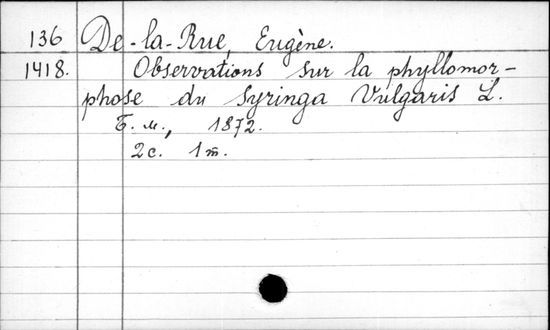 136 De-la-Rue, Eugène.
1418. Observations sur la phyllomor-
phose du Syringa Vulgaris L.
Б. м., 1872.
2с. 1 т.